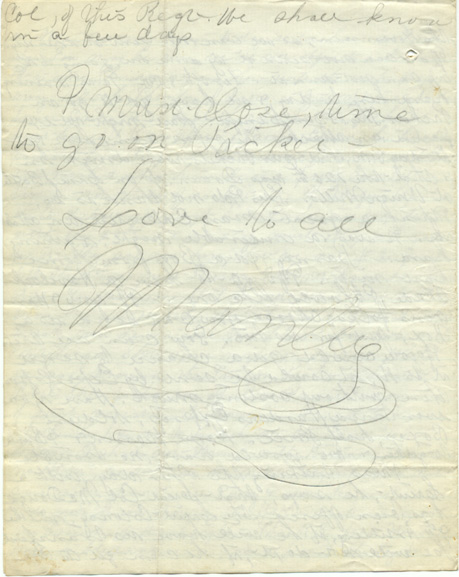 Col, of this Regt. We shall know
in a few days
I must close, time
to go on Picket -
Love to all
Manley